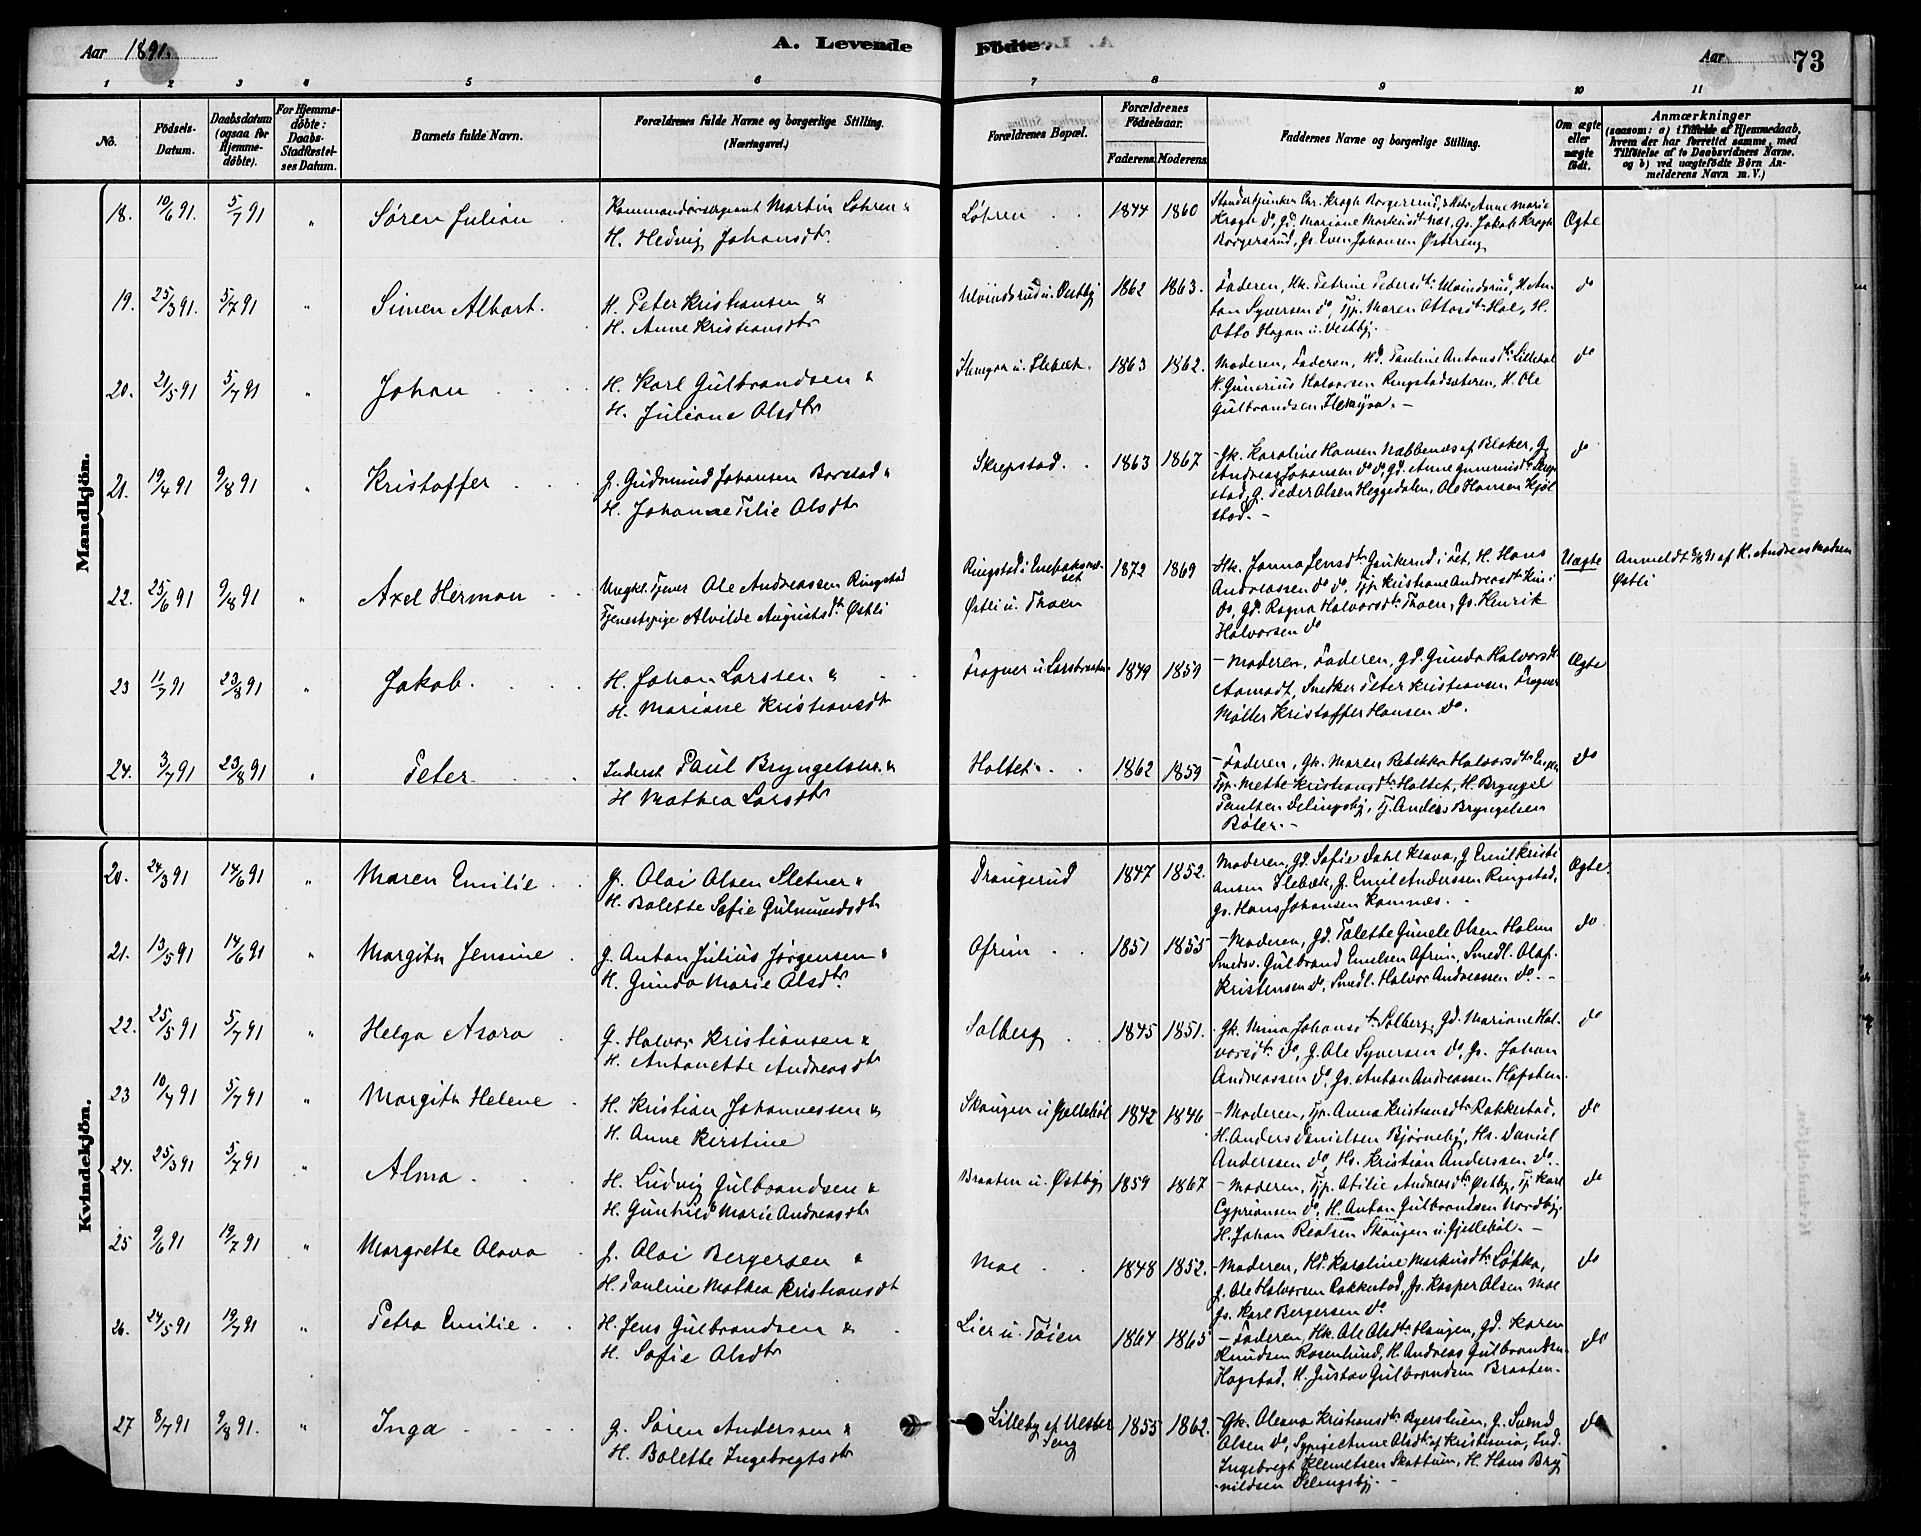 Aar 1891.
A. Levende
Fødte.
Aar
73
1 2 3 4 5 6 7 8 9 10 11
No.
Fødsels-Datum.
Daabsdatum (ogsaa for Hjemmedøbte).
For Hjemmedøbte: Daabs-Stadfæstelses Datum.
Barnets fulde Navn.
Forældrenes fulde Navne og borgerlige Stilling. (Næringsvei.)
Forældrenes Bopæl.
Forældrenes Fødselsaar.
Faderens. Moderens.
Faddernes Navne og borgerlige Stilling.
Om ægte eller uægte født.
Anmærkninger
(saasom: a) i Tilfælde af Hjemmedaab, hvem der har forrettet samme, med Tilføielse af to Daabsvidners Navne, og b) ved uægtefødte Børn Anmelderens Navn m. V.)
Mandkjøn.
18. 10/6 91. 5/7 91 " Søren Julian
Kommandersergeant Martin Løhren &
H. Hedvig Johansdtr.
Løhren 1844 1860
Borgersrud, Gs. Even Johansen Østereng
Ægte
19. 25/3 91. 5/7 91 " Simen Albart.
H. Peter Kristiansen &
H. Anne Kristiansdtr
Ulvindsrud u. Vestby 1862 1863.
Faderen, Hk. Petrine Pedersdtr Ulvindsrud, H. Anton Syversen do, Tjp. Maren Ottosdtr Hol, H.
Otto Hagan u. Vestby.
do
20. 21/5 91 5/7 91 " Johan
H. Karl Gulbrandsen &
H. Juliane Olsdtr
1863 1862.
Moderen, Faderen, Gd. Pauline Antonsdtr
H. Gunerius Halvorsen Ringstadsæteren, H. Ole
Gulbrandsen
do
21. 19/4 91 9/8 91 " Kristoffer
G. Gudmund Johansen Borstad &
H. Johanne Tilie Olsdtr
Skrepstad. 1863 1867
Gk. Karoline Hansen Næbbenæs af Blaker, G.
Andreas Johansen do do, Gd. Anne
stad, G. Peder Olsen Heggedalen, Ole Hansen Kjølstad.
do
22. 25/6 91 9/8 91 " Axel Herman
Ungkl. Tjener Ole Andreassen Ringstad
Tjenestepige Alvilde Augustsdtr Østli
Ringstad i Enebak
Østli u. Thoen
1872 1869
Hk. Janna Jensdtr i Øst, H. Hans
Andreassen do do, Tjp. Kristiane Andreasdtr
do, Gd. Ragna Halvorsdtr Thoen, Gs. Henrik
Halvorsen do
Uægte
Anmeldt 8/8 91 af H. Andreas Madsen
Østli
23 11/7 91 23/8 91 " Jakob.
H. Johan Larssen &
H. Mariane Kristiansdtr
Fragner u. Larsbraaten 1849 1859
Moderen, Faderen, Gd. Gunda Halvorsdtr
Aamodt, Snedker Peter Kristiansen, Fragner
Møller Kristoffer Hansen do.
Ægte
24. 3/7 91 23/8 91 " Peter
Inderst Paul Bryngelsen &
H. Mathea Larsdtr
Holtet 1862 1859
Faderen, Gk. Maren Rebekka Halvorsdtr
Tjp. Mette Kristiansdtr Holtet, H. Bryngel
Paulsen Delingsby, Tj. Anders Bryngelsen
Bøler.
do
Kvindekjøn.
20. 24/3 91 14/6 91 " Maren Emilie
G. Olai Olsen Sletner &
H. Bolette Sofie Gulmundsdtr
Draugerud 1847 1852.
Moderen, Gd. Sofie Dahl Klava, G. Emil Kristiansen Ilebæk, G. Emil Anderssen Ringstad,
Gs. Hans Johansen Kamnæs.
Ægte.
21. 13/5 91 14/6 91 " Margith Jensine
G. Anton Julius Jørgensen &
H. Gunda Marie Olsdtr.
Ofrim 1851 1855
Moderen, Gd. Talette Gunele Olsen Holm
Smedsv. Gulbrand Emelsen Ofrim, Smedl. Olaf
Kristensen do, Smedl. Halvor Andreassen do.
do
22. 25/5 91 5/7 91 " Helga Asora
G. Halvor Kristiansen &
H. Antonette Andreasdtr
Solberg 1845 1851.
Gk. Mina Johansdtr Solberg, Gd. Mariane Halvorsdtr do, G. Ole Syversen do, Gs. Johan
Andreassen do, Gs. Anton Andreassen
do
23 10/4 91 5/7 91 " Margith Helene
H. Kristian Johannessen &
H. Anne Kirstine
Skaugen u. Gjellebøl 1842 1846
Moderen, Tjp. Anna Kristiansdtr Rakkestad,
H. Anders Danielsen Bjørneby, Hs. Daniel
Anderssen do, Hs. Kristian Anderssen do.
do
24. 25/3 91 5/7 91 " Alma
H. Ludvig Gulbrandsen &
H. Gunhild Marie Andreasdtr
Braaten u. Østby 1859 1867
Moderen, Tjp. Otilie Andreasdtr Østby, Tj. Karl
Cypriansen do, H. Anton Gulbrandsen Nordby,
H. Johan Realsen Skaugen u. Gjellebøl.
do
25 9/6 91 19/7 91 " Margrethe Olava
G. Olai Bergersen &
H. Pauline Mathea Kristiansdtr
Moe 1848 1852.
Moderen, Hd. Karoline Markusdtr Løkka,
G. Ole Halvorsen Rakkestad, Gs. Kasper Olsen Moe
Gs. Karl Bergersen do
do
26. 24/5 91 19/7 91 " Petra Emilie
H. Jens Gulbrandsen &
H. Sofie Olsdtr
Lier u. Tøien 1864 1865
Faderen, Hk. Ole Olsdtr Haugen, Gd. Karen
Knudsen Rosenlund, H. Andreas Gulbrandsen
Hogstad, H. Gustav Gulbrandsen Braaten.
do
27 8/7 91 9/8 91. " Inga
G. Søren Anderssen &
H. Bolette Ingebregtsdtr
Lilleby af Vester
Teng
1855 1862.
Gk. Oleana Kristiansdtr Byersluen, G. Svend
Olsen do, Sypige Anne Olsdtr af Kristiania, Ind.
Ingebregt Klemetsen Skattum, H. Hans Brynildsen Delingsby.
do